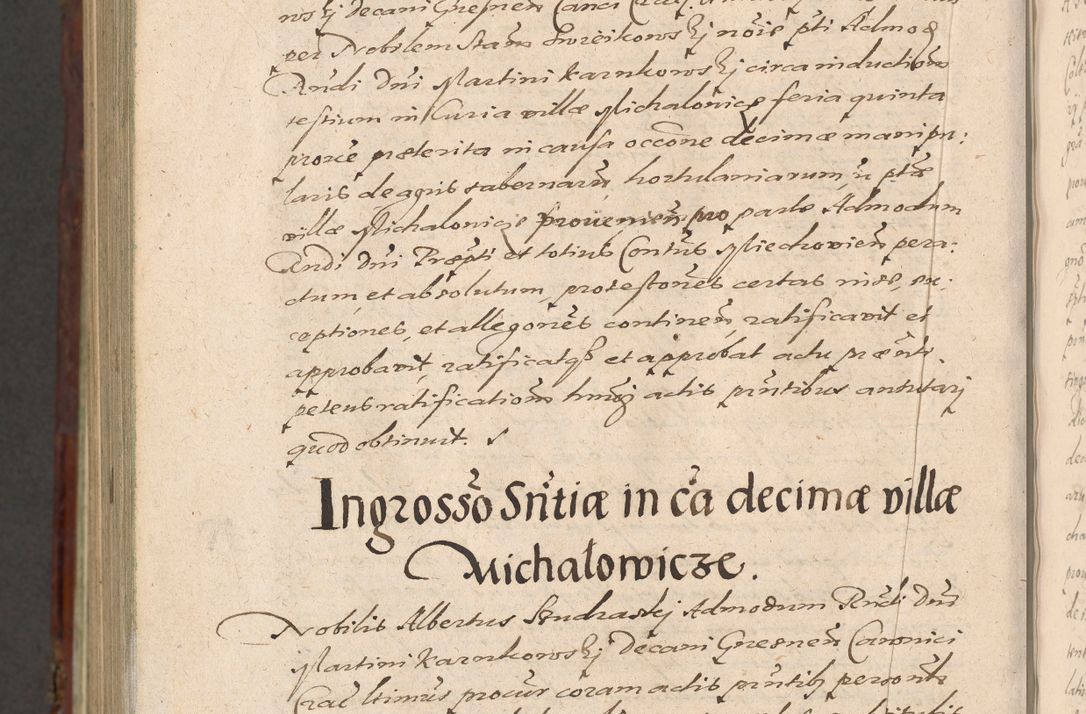 per Nobilem Stañ Swieikowskj nõie pti Admod
Rñdi Dñi Martini Karnkowskj circa inductionẽ
testium in Curia villæ Michalouicze feria quinta
proxe præterita in causa occõne decimæ manipu:
laris de agris tabernarũ, hortulaniarum, in ptẽ
villæ Michalouicze prouenieñ pro parte Admodum
Rñdi Dñi Præpti et totius Conũtus Miechouieñ pera:
ctum, et absolutum, protestones certas nise, ex:
ceptiones, et allegõnes contineñ, ratificauit et
approbauit, ratificatqz et approbat actu præñti.
petens ratificationẽ hmõj actis prñtibus annotarj
quod obtinuit.
Ingrosso Sñtiæ in cã decimæ villæ
Michałowicze.
Nobilis Albertus Studzaskj Admodum Rñdi Dñi
Martini Karnkowskj Decani Gnesneñ Canonici
Crac ltimus procur coram actis prñtibz personlr